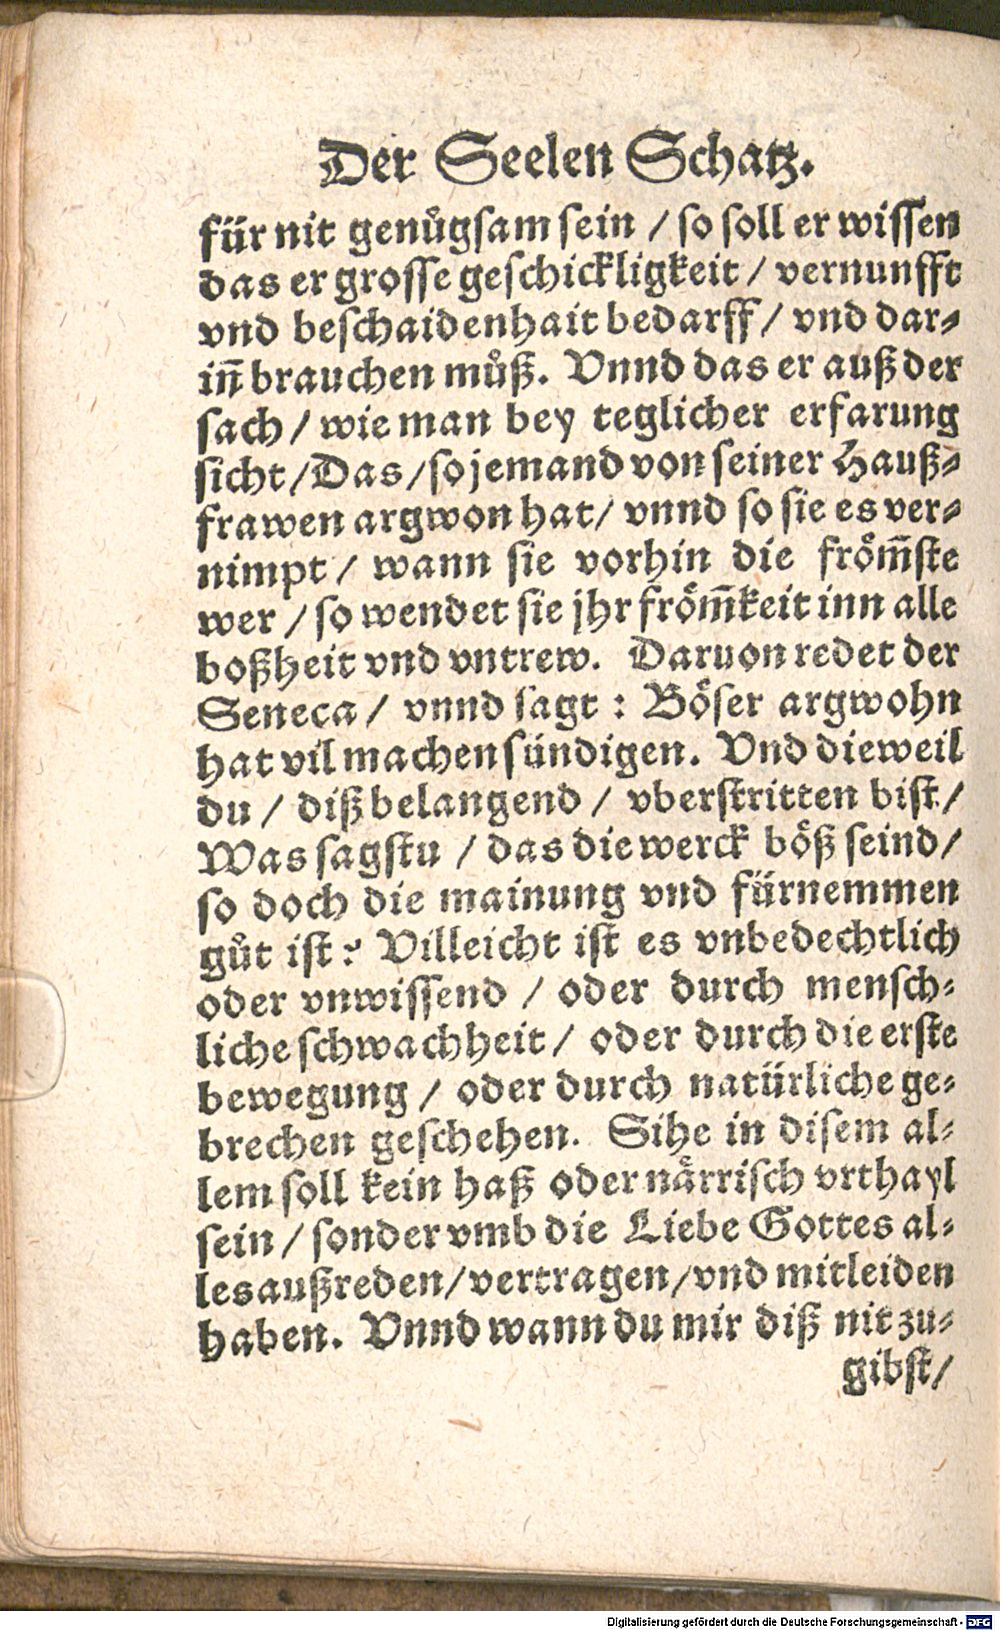 Der Seelen Schatz.
für nit genůgsam sein / so soll er wissen
das er grosse geschickligkeit / vernunfft
vnd beschaidenhait bedarff / vnd dar⸗
iñ brauchen můß. Vnnd das er auß der
sach / wie man bey teglicher erfarung
sicht / Das / so jemand von seiner Hauß⸗
frawen argwon hat / vnnd so sie es ver⸗
nimpt / wann sie vorhin die fröm̃ste
wer / so wendet sie jhr fröm̃keit inn alle
boßheit vnd vntrew. Daruon redet der
Seneca / vnnd sagt : Böser argwohn
hat vil machen sündigen. Vnd dieweil
du / diß belangend / vberstritten bist /
Was sagstu / das die werck böß seind /
so doch die mainung vnd fürnemmen
gůt ist? Villeicht ist es vnbedechtlich
oder vnwissend / oder durch mensch⸗
liche schwachheit / oder durch die erste
bewegung / oder durch natürliche ge⸗
brechen geschehen. Sihe in disem al⸗
lem soll kein haß oder närrisch vrthayl
sein / sonder vmb die Liebe Gottes al⸗
les außreden / vertragen / vnd mitleiden
haben. Vnnd wann du mir diß nit zu⸗
gibst /
Digitalisierung gefördert durch die Deutsche Forschungsgemeinschaft - DFG